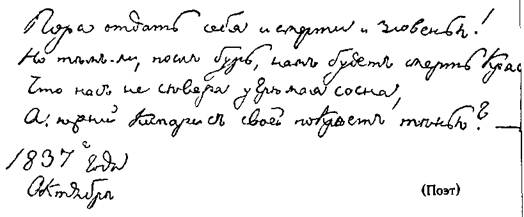 Пора отдать себя и смерти и забвенью!
Но тѣмъ-ли, послѣ бурь, намъ будетъ смерть крас
Что насъ не сѣвера угрюмая сосна,
А южный кипарисъ своей покроетъ тѣнью?
1837 года
Октябрь
(Поэт)